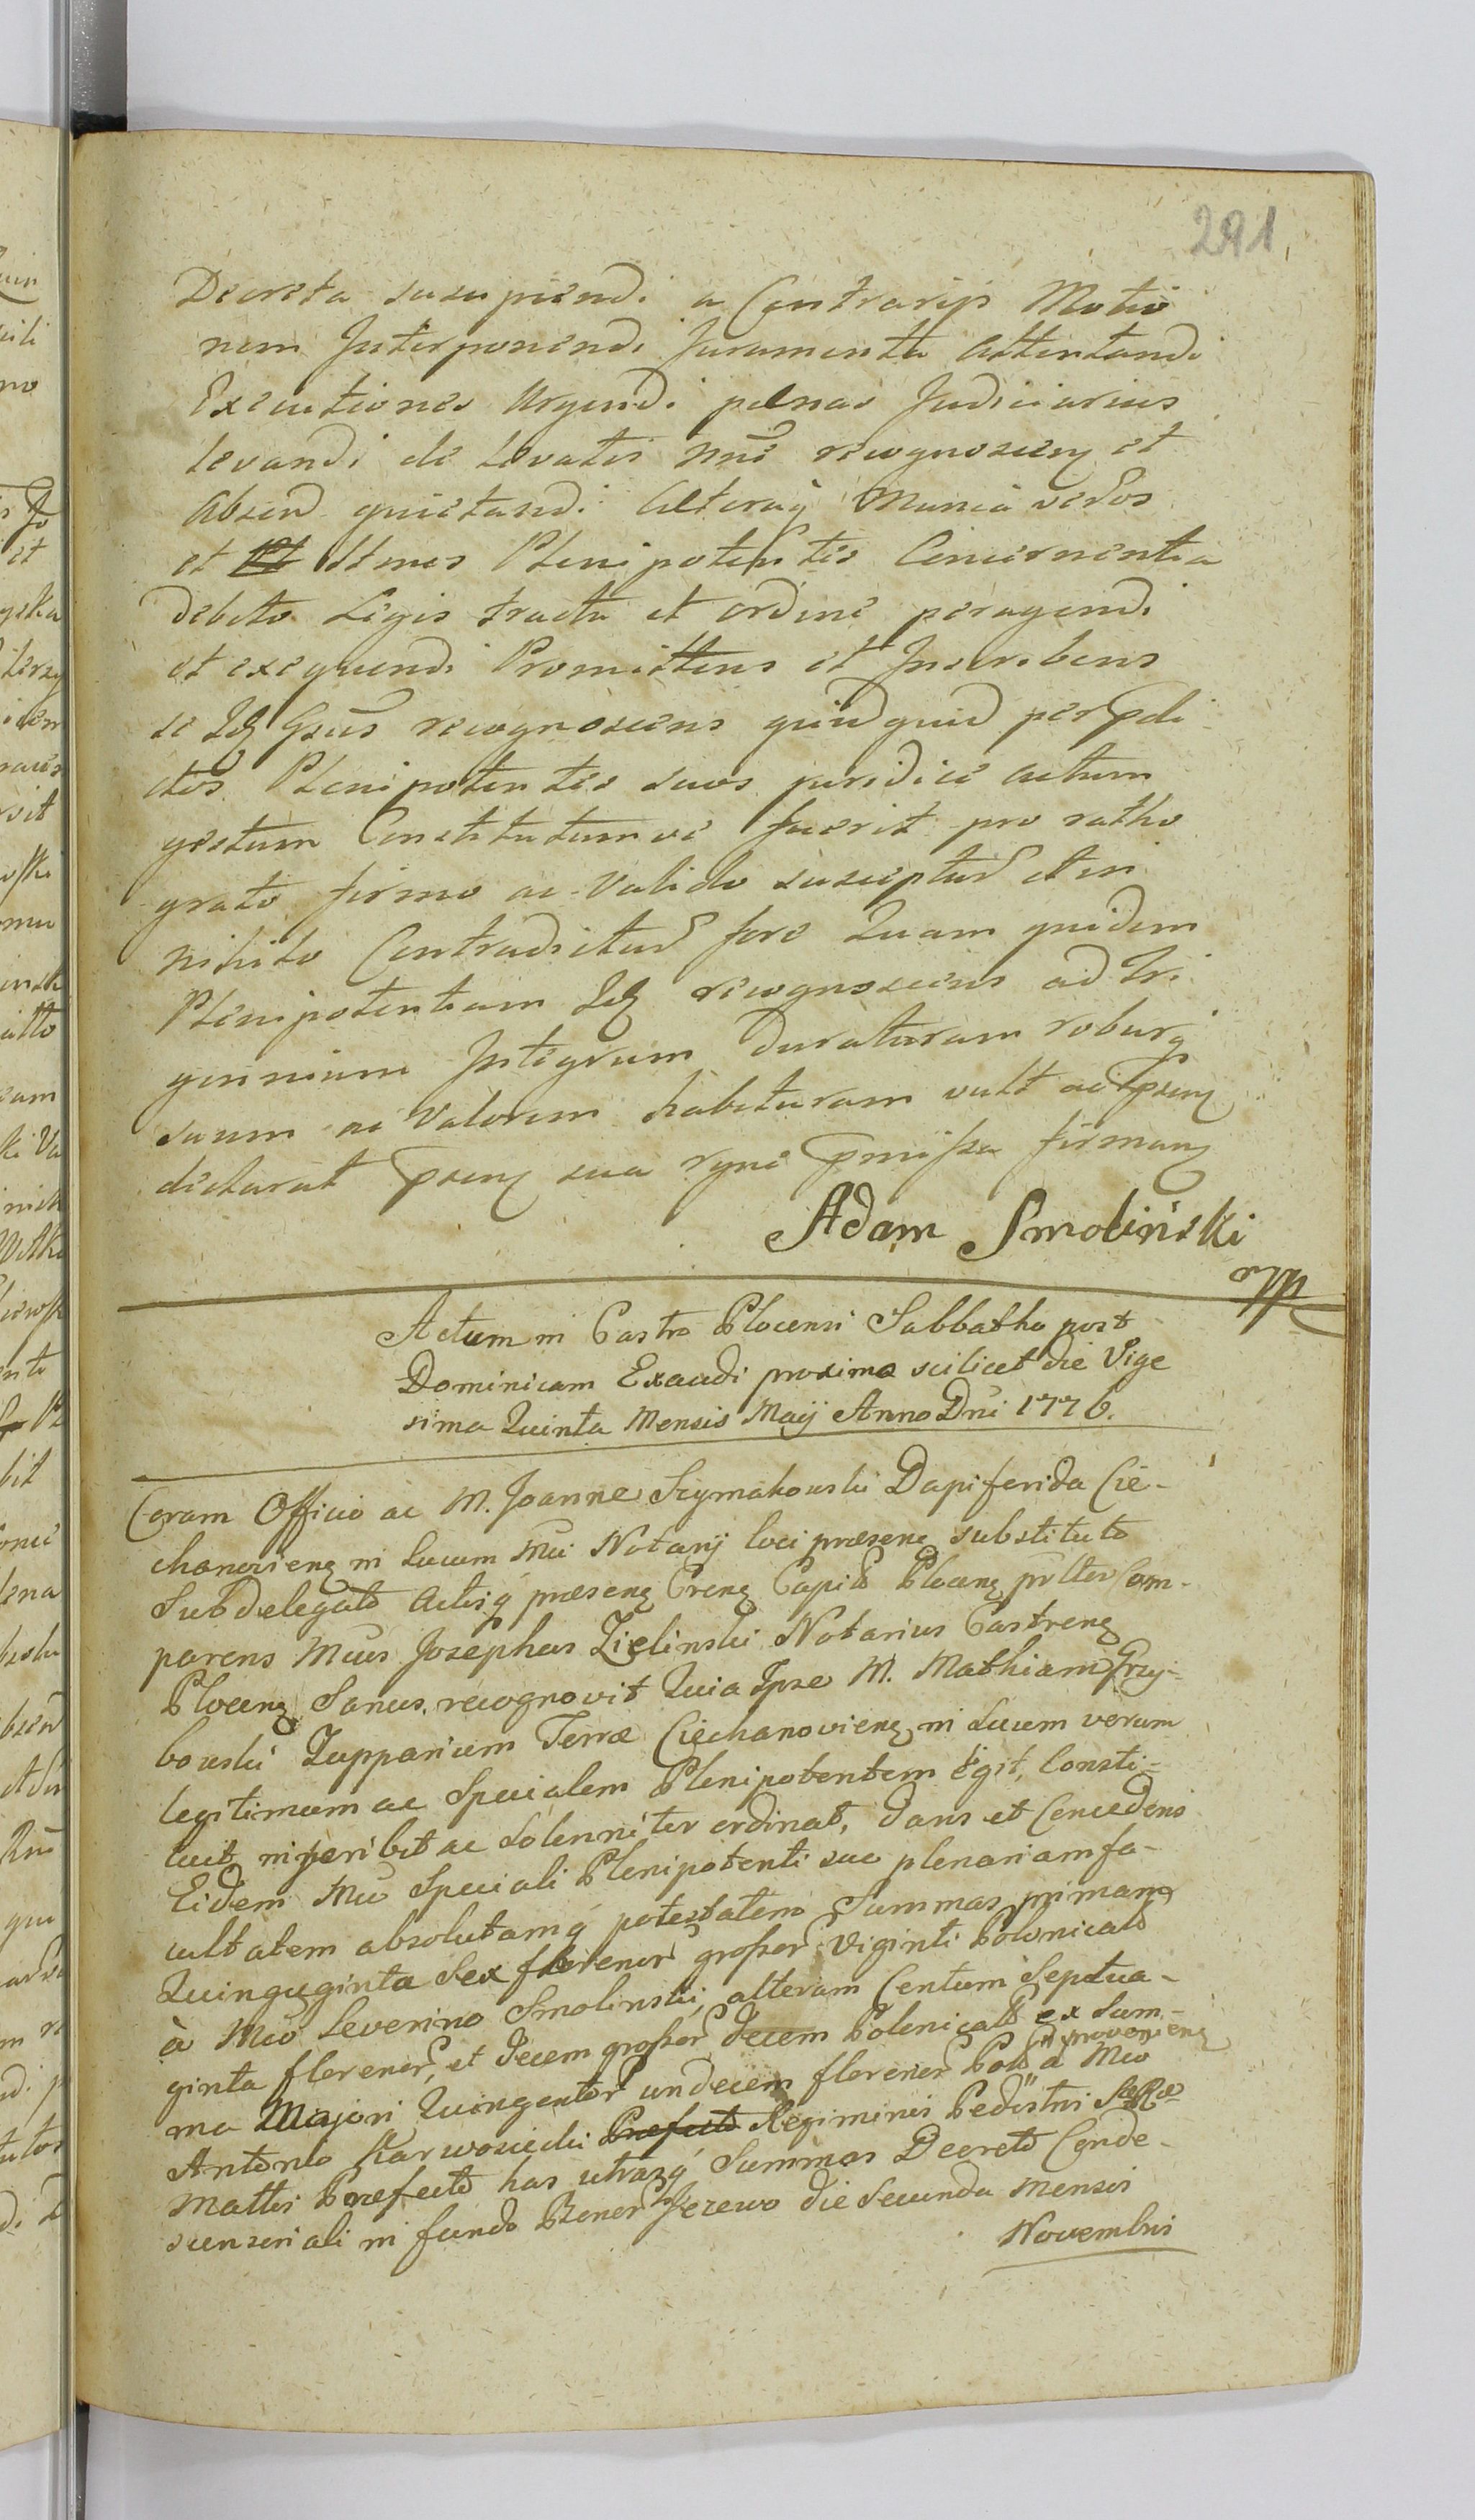 291
Decreta suscipiendi a Contrarijs Motio
nem Interponendi Juramenta Attentandi
Executiones Urgendi pænas Judiciarias
levandi de levatis mnė recognoscen et
Absend quietandi Alteraq Munia verŏos
et Stmes Plenipotentes Concernentia
debito Legis tractu et ordine peragendi
et exequendi Promittens et Inscribens
se Idq Gsus recognoscens quidquid per pdi
ctos Plenipotentes suos juridice actum
gestum Constitutumve fuerit pro ratho
grato firmo ac Valido suscepturꝰ et in
nihilo Contradicturꝰ fore Quam quidem
Plenipotentiam Idq recognoscens ad Tri
gennium Integrum duraturam roburq
suum ac Valorem habituram vult ac psenq
declarat psenq sua rgne pmissa firmanq
Adam Smoliński
mpp
Actum in Castro Plocensi Sabbatho post
Dominicam Exaudi proximo scilicet die Vige
sima Quinta Mensis Maij Anno Dni 1776.
Coram Officio ac M. Joanne Szymakowski Dapiferida Cie-
chanovienq in Locum Mci Notarij loci præsenq substituto
Subdelegato Actisq præsenq Crenq Capits Plocenq psltes Com-
parens Mcus Josephus Zielinski Notarius Castrenq
Plocenq Sanus, recognovit Quia Ipse M. Mathiam Grzy-
bowski Zupparium Terræ Ciechanovienq in Suum verum
legitimum ac Specialem Plenipotentem egit, Consti-
tuit, inscribit ac Solenniter ordinat, dans et Concedens
Eidem Mco Speciali Plenipotenti suo plenariam fa-
cultatem absolutamq potestatem Summas, primam
Quinquginta Sex florenorꝰ grossor Viginti Polonicals
à Mco Severino Smolinski, alteram Centum Septua-
ginta florenorꝰ, et decem grossorꝰ decem Polonicals ex Sum-
provenienq
ma Majori Quingentorꝰ undecim florenorꝰ Pols a Mco
Antonio Karwosiecki Præfecto Regiminis Pedestris SRæ
Mattis Præfecto has utrasq Summas Decreto Conde-
scensoriali in fundo Bonorꝰ Jezewo die Secunda Mensis
Novembris